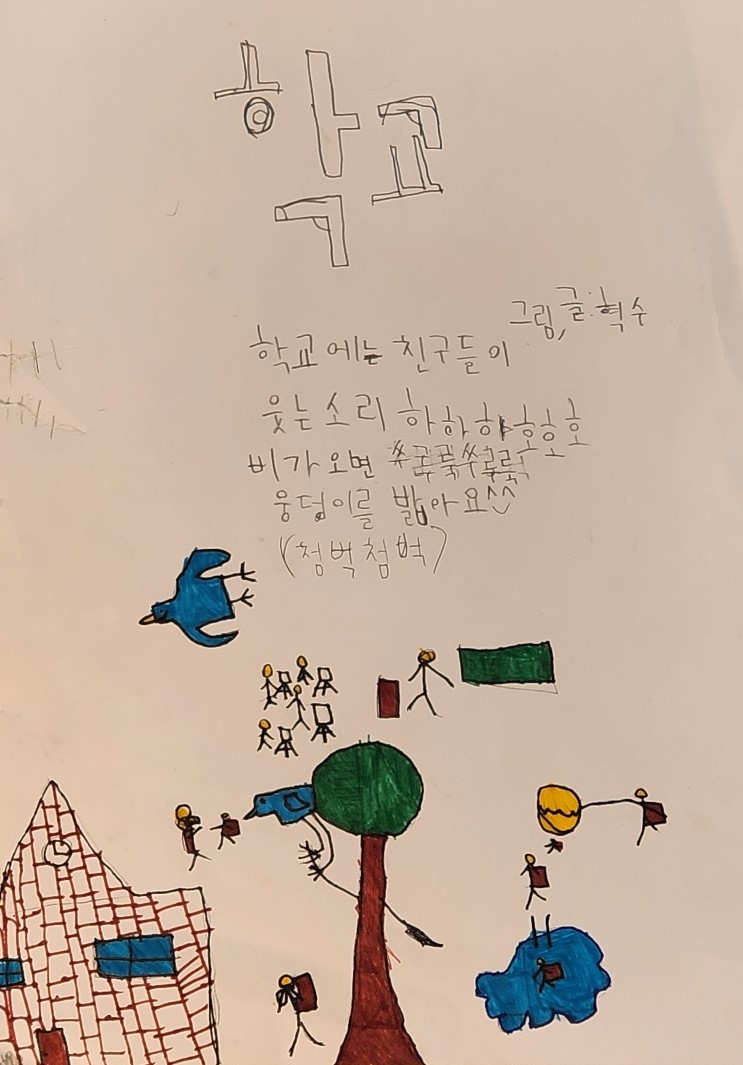 학교
그림,글:혁수
학교에는 친구들이
웃는소리 하하하 호호호
비가오면 쭈룩룩쭈룩룩
웅덩이를 밟아요^^
(첨벅첨벅)